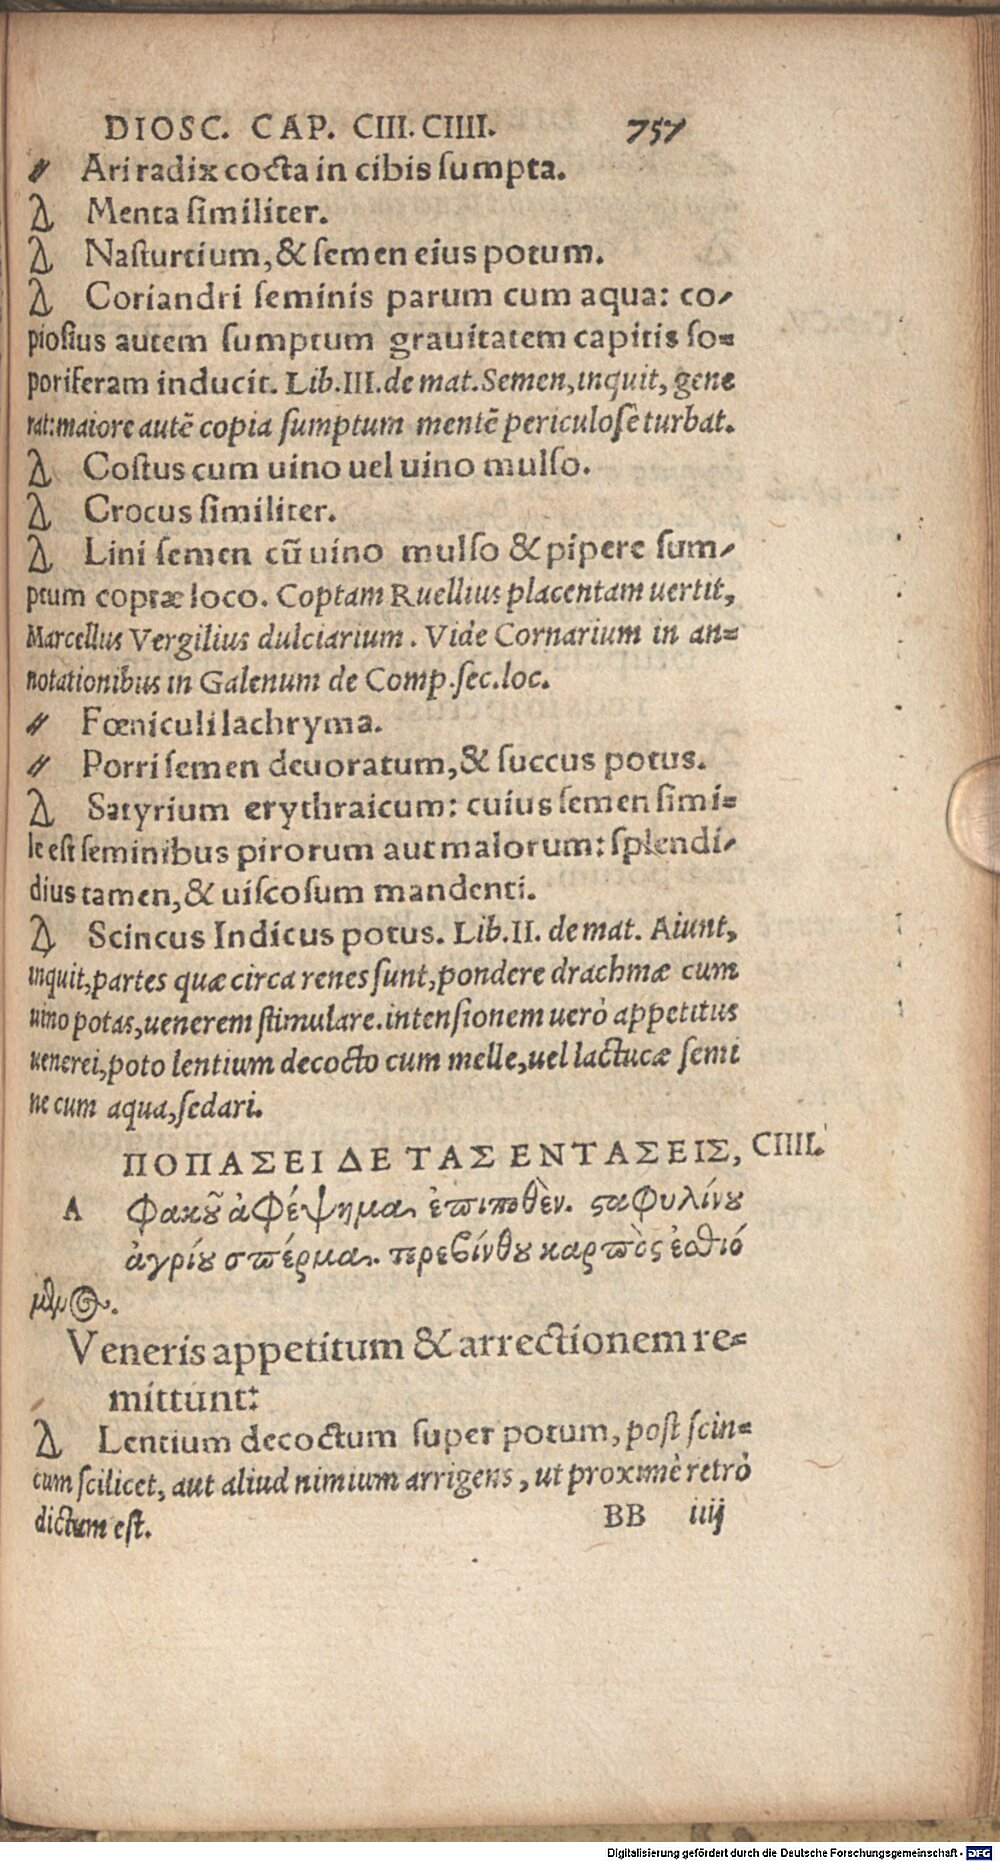 DIOSC. CAP. CIII. CIIII. 757
〃 Ari radix cocta in cibis sumpta.
Δ Menta similiter.
Δ Nasturtium, & semen eius potum.
Δ Coriandri seminis parum cum aqua: co-
piosius autem sumptum grauitatem capitis so-
poriferam inducit. Lib. III. de mat. Semen, inquit, gene
rat: maiore autē copia sumptum mentē periculosè turbat.
Δ Costus cum uino uel uino mulso.
Δ Crocus similiter.
Δ Lini semen cū uino mulso & pipere sum-
ptum coptæ loco. Coptam Ruellius placentam uertit,
Marcellus Vergilius dulciarium. Vide Cornarium in an-
notationibus in Galenum de Comp. sec. loc.
〃 Fœniculi lachryma.
〃 Porri semen deuoratum, & succus potus.
Δ Satyrium erythraicum: cuius semen simi-
le est seminibus pirorum aut malorum: splendi-
dius tamen, & uiscosum mandenti.
Δ Scincus Indicus potus. Lib. II. de mat. Aiunt,
inquit, partes quæ circa renes sunt, pondere drachmæ cum
uino potas, uenerem stimulare. intensionem uerò appetitus
uenerei, poto lentium decocto cum melle, uel lactucæ semi
ne cum aqua, sedari.
ΠΟΠΑΣΕΙ ΔΕ ΤΑΣ ΕΝΤΑΣΕΙΣ, CIIII.
A Φακοῦ ἀφέψημα ἐπιποθὲν. σαφυλίνου
ἀγρίου σπέρμα. περεβίνθου καρπὸς ἐσθιό
μενος.
Veneris appetitum & arrectionem re-
mittunt:
Δ Lentium decoctum super potum, post scin-
cum scilicet, aut aliud nimium arrigens, ut proximè retrò
dictum est. BB iiij
Digitalisierung gefördert durch die Deutsche Forschungsgemeinschaft - DFG